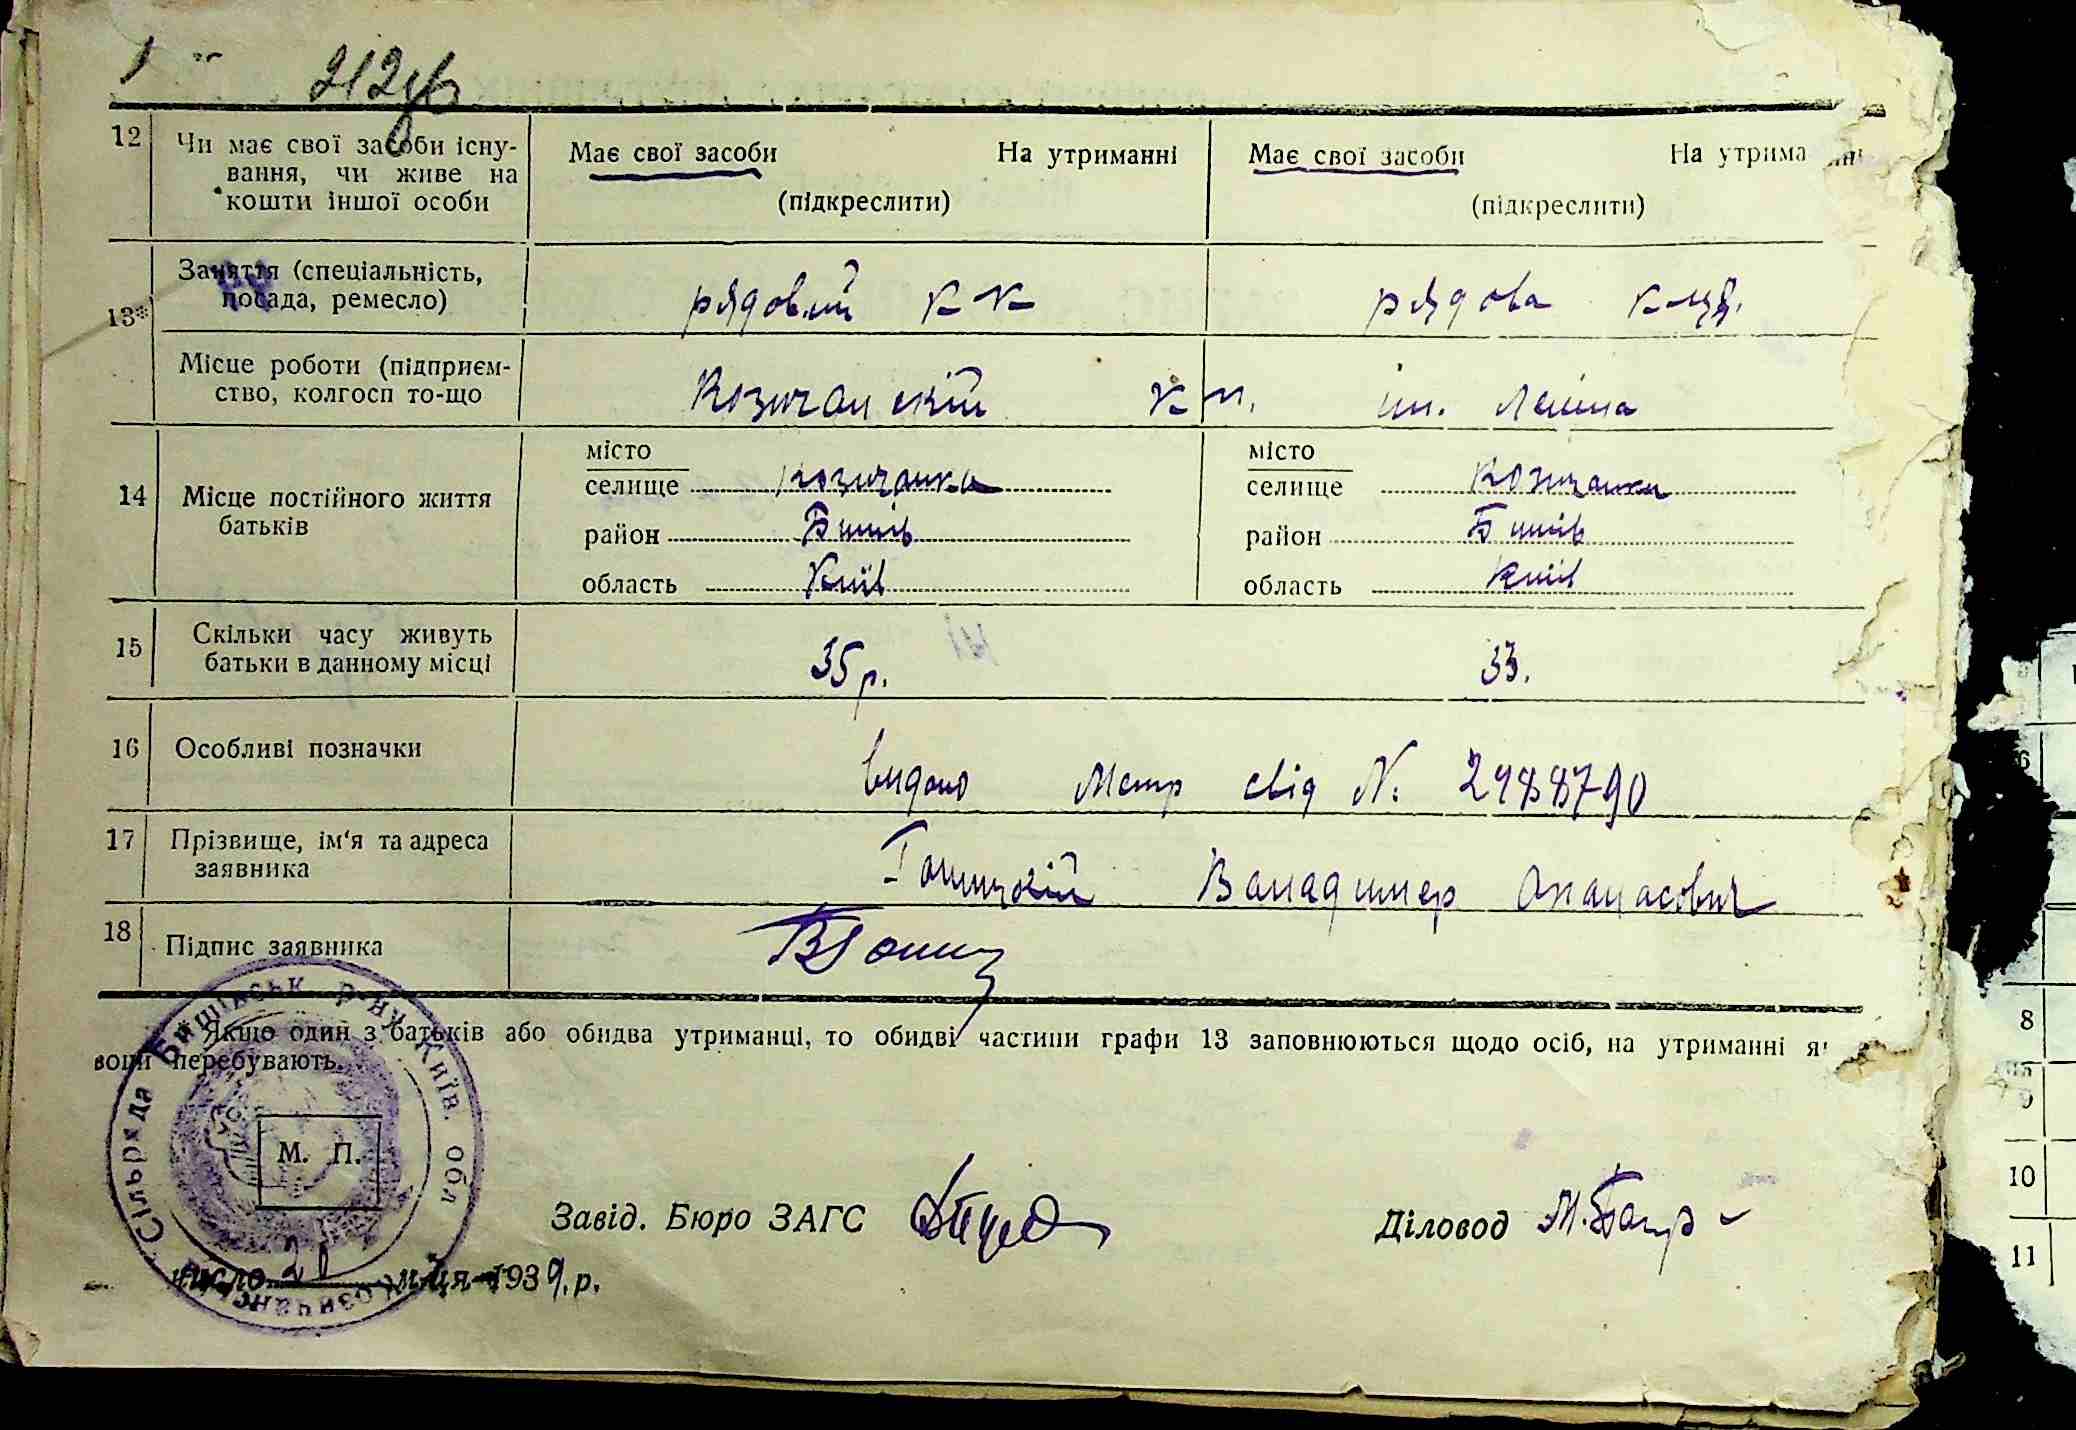 212
12 Чи має свої засоби існу- Має свої засоби На утриманні Має свої засоби На утрима
вання, чи живе на
кошти іншої особи (підкреслити) (підкреслити)
13* Заняття (спеціальність, рядовий к-к рядова к-ця.
посада, ремесло)
Місце роботи (підприєм- Козичанскій к-п. ім. Леніна
ство, колгосп то-що
14 Місце постійного життя батьків
місто місто
селище Козичанка селище Козичанка
район Бишів район Бишів
область Київ область Київ
15 Скільки часу живуть 35 р. 33.
батьки в данному місці
16 Особливі позначки видано Метр свід №. 2488790
17 Прізвище, ім'я та адреса Володимер Опанасович
заявника
18 Підпис заявника
Якщо один з батьків або обидва утриманці, то обидві частини графи 13 заповнюються щодо осіб, на утриманні
вони перебувають.
Сільрада Бишівськ. р-ну Київ. обл
М. П.
Завід. Бюро ЗАГС Діловод
число 20 м-ця 1939.р.
8
10
11